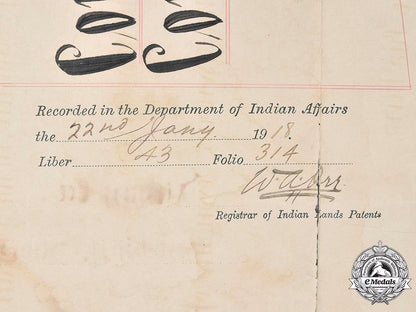 Recorded in the Department of Indian Affairs
the 22nd Jany 1918.
Liber 43 Folio 314
Registrar of Indian Lands Patents
eMedals